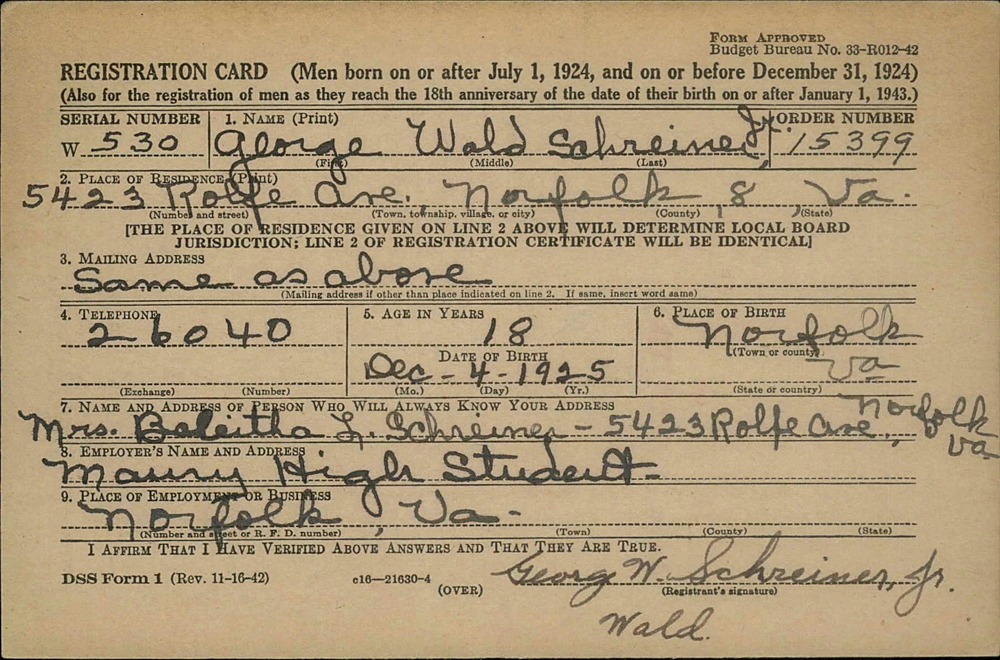 FORM APPROVED
Budget Bureau No. 33-R012-42
REGISTRATION CARD (Men born on or after July 1, 1924, and on or before December 31, 1924)
(Also for the registration of men as they reach the 18th anniversary of the date of their birth on or after January 1, 1943.)
SERIAL NUMBER 1. NAME (Print) ORDER NUMBER
W 530 George Wald Schreiner, Jr. 15399
(First) (Middle) (Last)
2. PLACE OF RESIDENCE (Print)
5423 Rolfe Ave., Norfolk, 8, Va.
(Number and street) (Town, township, village, or city) (County) (State)
[THE PLACE OF RESIDENCE GIVEN ON LINE 2 ABOVE WILL DETERMINE LOCAL BOARD
JURISDICTION; LINE 2 OF REGISTRATION CERTIFICATE WILL BE IDENTICAL]
3. MAILING ADDRESS
Same as above
(Mailing address if other than place indicated on line 2. If same, insert word same)
4. TELEPHONE 5. AGE IN YEARS 6. PLACE OF BIRTH
26040 18 Norfolk
(Town or county)
DATE OF BIRTH
Dec - 4 - 1925 Va
(Exchange) (Number) (Mo.) (Day) (Yr.) (State or country)
7. NAME AND ADDRESS OF PERSON WHO WILL ALWAYS KNOW YOUR ADDRESS
Mrs. L. Schreiner - 5423 Rolfe Ave., Norfolk
Va
8. EMPLOYER'S NAME AND ADDRESS
Maury High Student
9. PLACE OF EMPLOYMENT OR BUSINESS
Norfolk, Va.
(Number and street or R. F. D. number) (Town) (County) (State)
I AFFIRM THAT I HAVE VERIFIED ABOVE ANSWERS AND THAT THEY ARE TRUE.
DSS Form 1 (Rev. 11-16-42) c16—21630-4 (OVER) Georg W. Schreiner, Jr.
(Registrant's signature)
Wald.